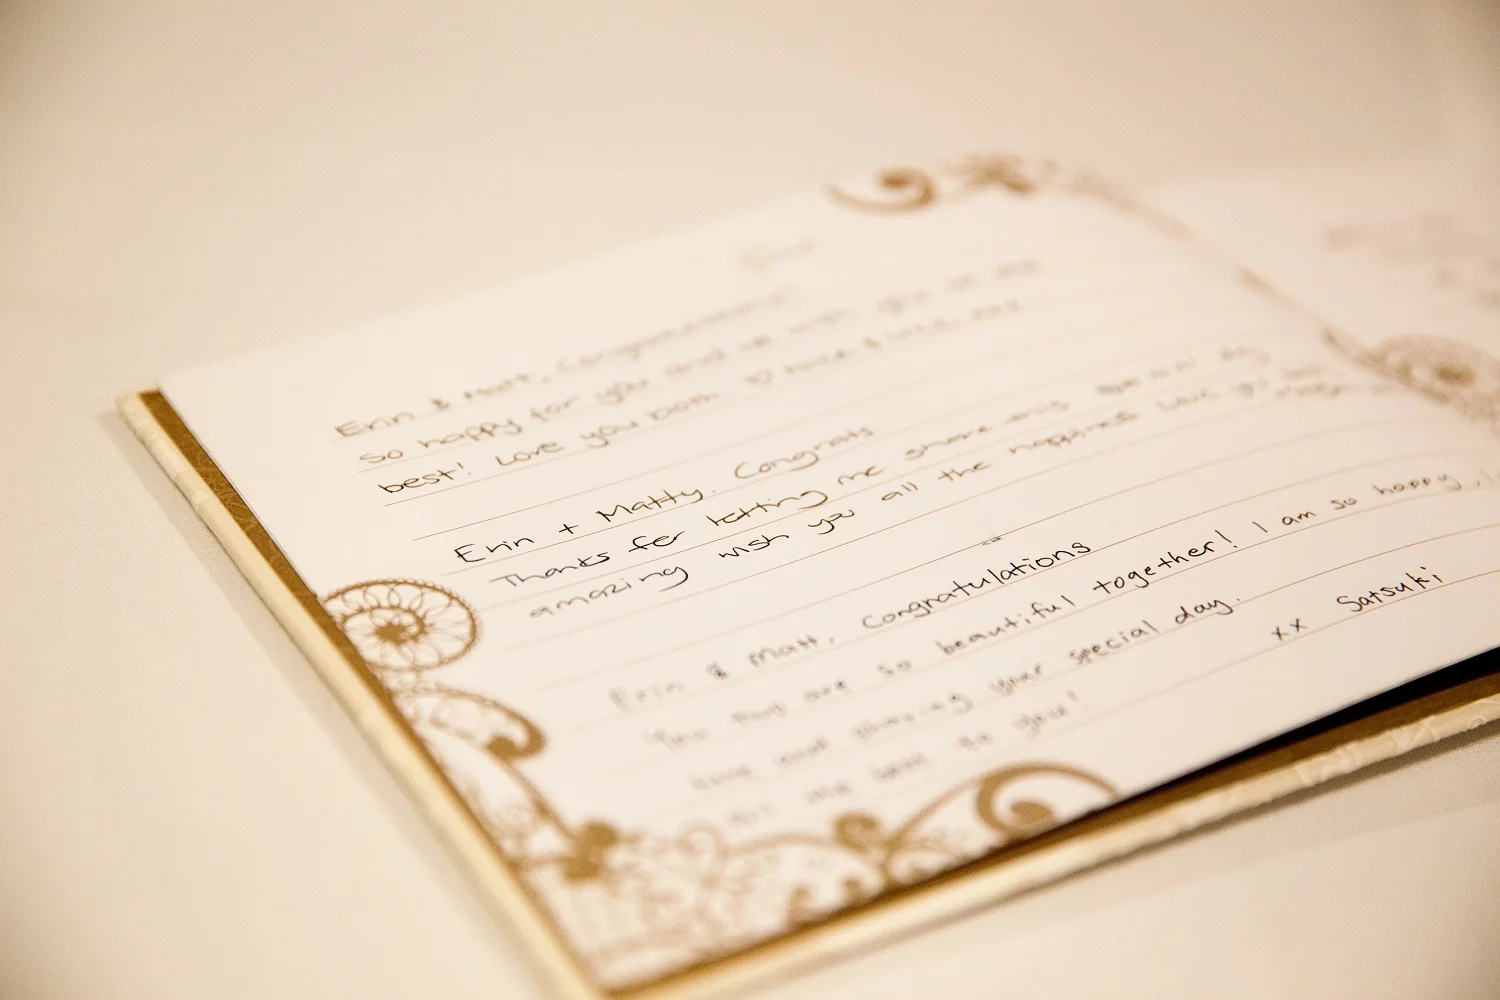 Erin & Matt, Congratulations!
So happy for you and we wish you all the
best! Love you both. ♡
Erin + Matty. Congrats
Thanks for letting me share this
amazing wish you all the happiness love you
Erin & Matt, Congratulations
You two are so beautiful together! I am so happy,
love and sharing your special day.
all the best to you!
xx Satsuki